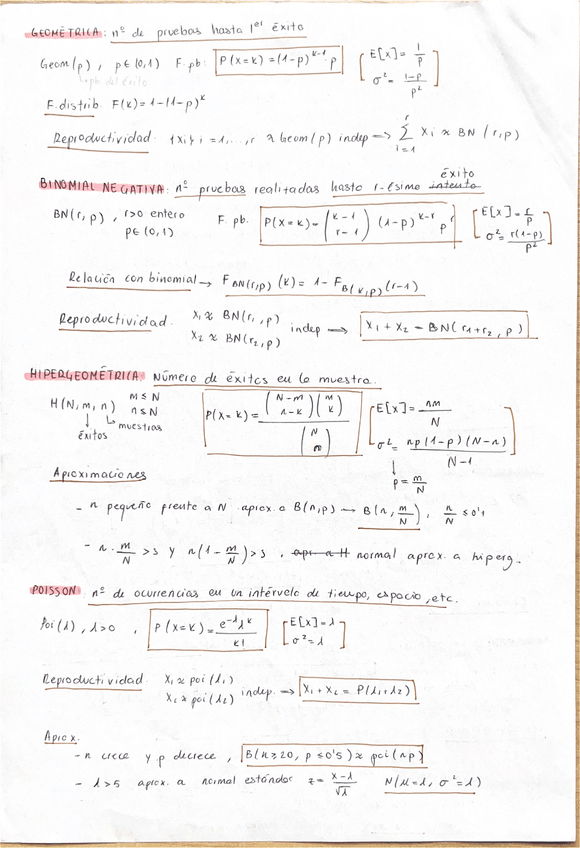 GEOMÉTRICA: nº de pruebas hasta 1er éxito
Geom(p), p∈(0,1) F. pb: P(X=k) = (1-p)^{k-1} · p [E[x] = 1/p
pb. del éxito σ² = (1-p)/p²]
F. distrib. F(k) = 1-(1-p)^k
Reproductividad. {Xi} i=1,...,r ≈ Geom(p) indep → Σ_{i=1}^{r} Xi ≈ BN(r,p)
BINOMIAL NEGATIVA: nº pruebas realizadas hasta r-ésimo ~~intento~~ éxito
BN(r,p), r>0 entero F. pb. P(X=k) = (k-1 r-1) (1-p)^{k-r} p^r [E[x] = r/p
p∈(0,1) σ² = r(1-p)/p²]
Relación con binomial → F_{BN(r,p)}(k) = 1 - F_{B(k,p)}(r-1)
Reproductividad. X₁ ≈ BN(r₁,p)
X₂ ≈ BN(r₂,p) indep → X₁+X₂ ~ BN(r₁+r₂, p)
HIPERGEOMÉTRICA: Número de éxitos en la muestra.
H(N,m,n) m≤N n≤N P(X=k) = (N-m n-k)(m k) / (N m) [E[x] = nm/N
↓ éxitos ↳ muestras σ² = np(1-p)(N-n)/N-1]
↓ p = m/N
Aproximaciones
- n pequeño frente a N aprox. a B(n,p) → B(n, m/N), n/N ≤ 0'1
- n · m/N > 5 y n(1 - m/N) > 5, ~~apr. a H~~ normal aprox. a hiperg.
POISSON: nº de ocurrencias en un intervalo de tiempo, espacio, etc.
Poi(λ), λ>0, P(X=k) = e^{-λ} λ^k / k! [E[x] = λ
σ² = λ]
Reproductividad. X₁ ≈ poi(λ₁)
X₂ ≈ poi(λ₂) indep. → X₁+X₂ = P(λ₁+λ₂)
Aprox.
- n crece y p decrece, B(n≥20, p≤0'5) ≈ poi(np)
- λ>5 aprox. a normal estándar z = (x-λ)/√λ N(μ=λ, σ²=λ)